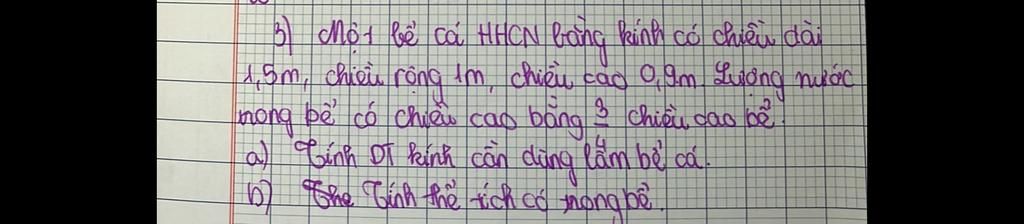 3) Một bể cá HHCN bằng kính có chiều dài
1,5m, chiều rộng 1m, chiều cao 0,9m. Lượng nước
trong bể có chiều cao bằng 3/4 chiều cao bể.
a) Tính DT kính cần dùng làm bể cá.
b) The Tính thể tích có trong bể.